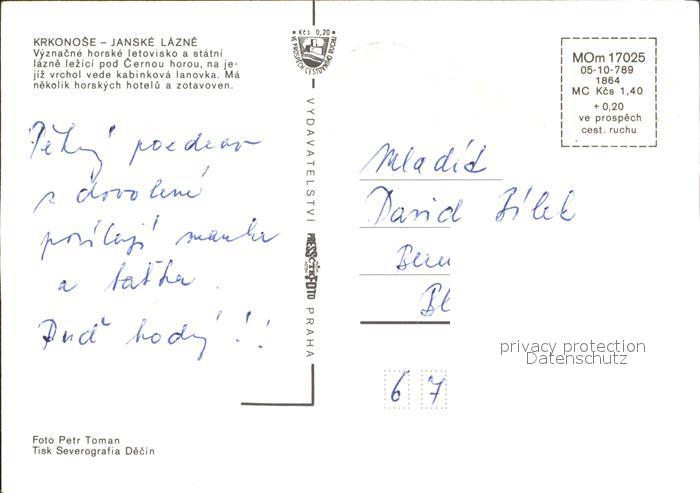 KRKONOŠE – JANSKÉ LÁZNĚ
Význačné horské letovisko a státní
lázně ležící pod Černou horou, na je-
jíž vrchol vede kabinková lanovka. Má
několik horských hotelů a zotavoven.
Pěkný pozdrav
s dovolené
posílají mamka
a taťka.
Buď hodný!!
Foto Petr Toman
Tisk Severografia Děčín
Kčs 0,20
VE PROSPĚCH CESTOVNÍHO RUCHU
VYDAVATELSTVÍ PRESSFOTO PRAHA
ČTK
MOm 17025
05-10-789
1864
MC Kčs 1,40
+ 0,20
ve prospěch
cest. ruchu
Mladík
David Bílek
67
privacy protection
Datenschutz